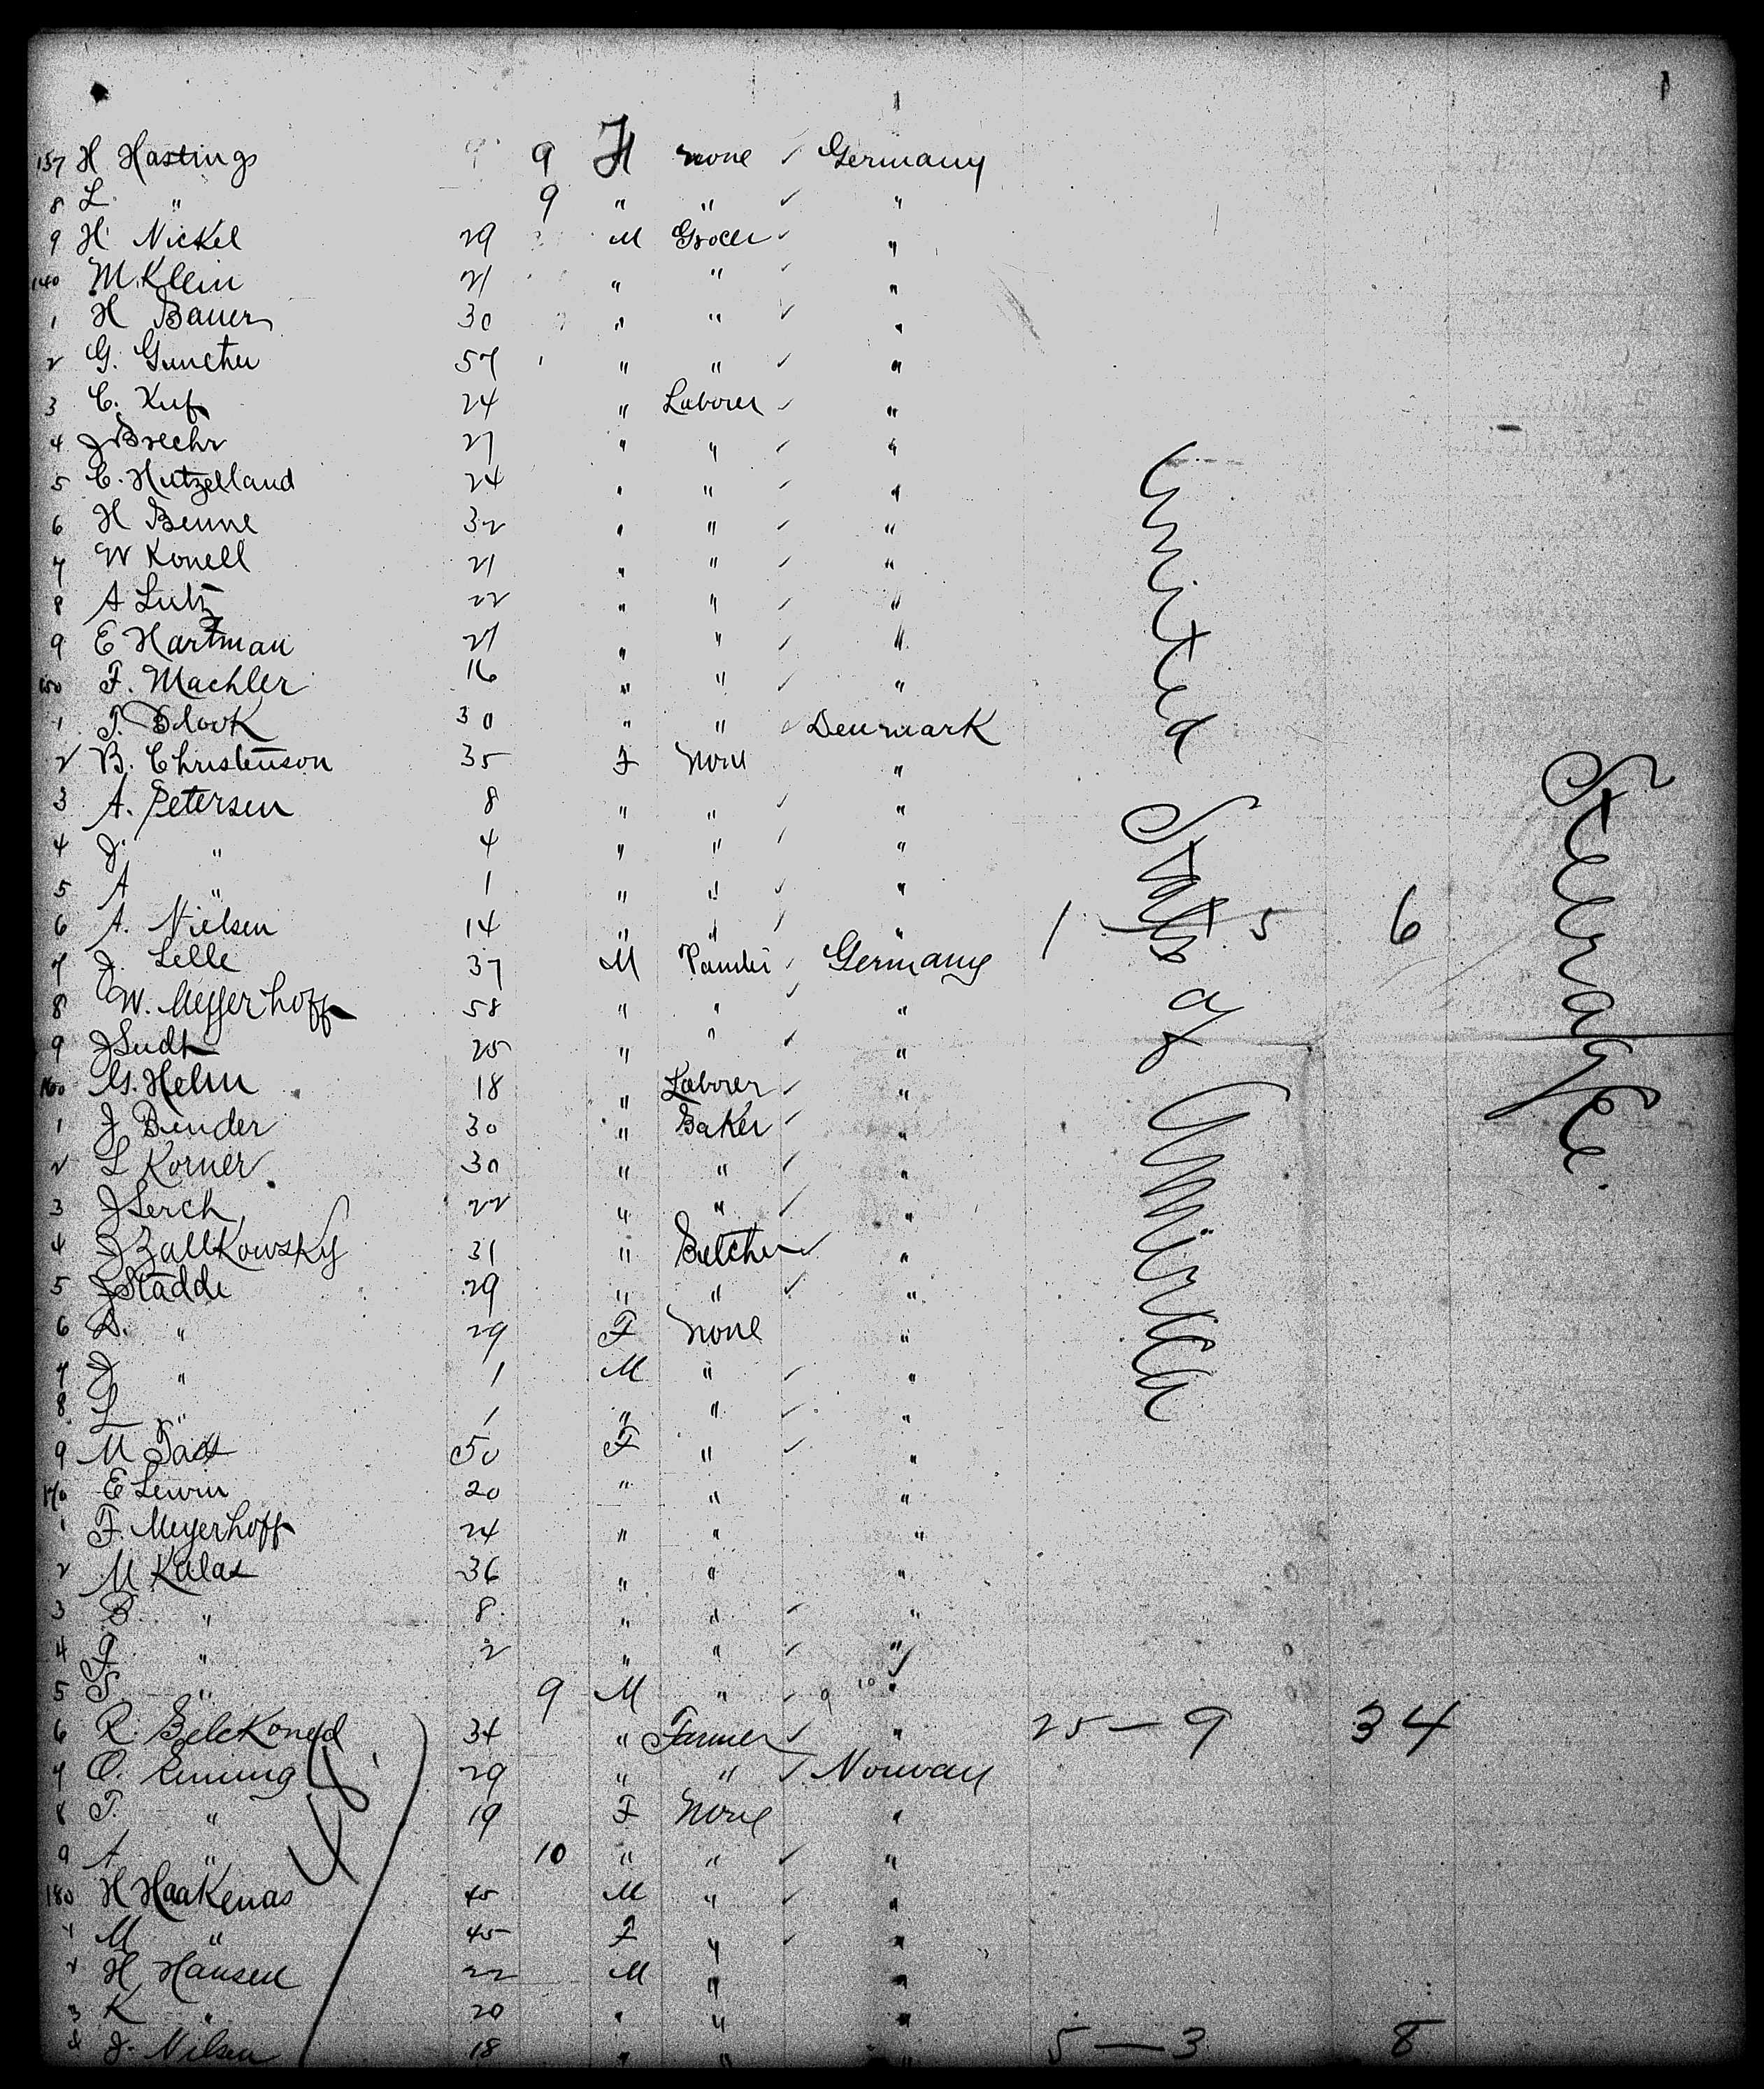 157 H Hastings 9 H none ✓ Germany
8 L. " 9 " " ✓ "
9 H Nickel 29 M Grocer ✓ "
140 M. Klein 21 " " ✓ "
1 H Bauer 30 " " ✓ "
2 G. Gunther 57 " " ✓ "
3 C. 24 " Laborer ✓ "
4 J Brechr 27 " " ✓ "
5 C. Hutzelland 24 " " ✓ "
6 H Benne 32 " " ✓ "
7 W Konell 21 " " ✓ "
8 A Lutz 22 " " ✓ "
9 E Hartman 21 " " ✓ "
150 F. Machler 16 " " ✓ "
1 P. Block 30 " " Denmark
2 B. Christenson 35 F None "
3 A. Petersen 8 " " ✓ "
4 J. " 4 " " "
5 A " 1 " " ✓ "
6 A. Nielsen 14 " " " 1 — 5 6
7 J. Lelle 37 M ✓ Germany
8 W. Meyerhoff 58 " " ✓ "
9 J 25 " " ✓ "
160 G. Helm 18 " Laborer ✓ "
1 J Binder 30 " Baker ✓ "
2 L Korner 30 " " ✓ "
3 J Lerch 22 " " ✓ "
4 J Zallkowsky 31 " Butcher ✓ "
5 J Stadde 29 " " ✓ "
6 D. " 29 F None "
7 J " 1 M " ✓ "
8 L " 1 " " ✓ "
9 M 50 F " ✓ "
170 E Lewin 20 " " "
1 F. Meyerhoff 24 " " "
2 M Kalas 36 " " "
3 B. " 8 " " ✓ "
4 " 2 " " ✓ "
5 S " 9 M " ✓ "
6 R. 34 " Farmer ✓ " 25 — 9 34
7 O. 29 " " ✓ Norway
8 T. " 19 F None "
9 A " 10 " " ✓ "
180 H Haakenas 45 M " ✓ "
1 M " 45 F " ✓ "
2 H Hansen 22 M " "
3 K " 20 " " "
4 J. Nilsen 18 " " " 5 — 3 8
United States of America
Steerage.